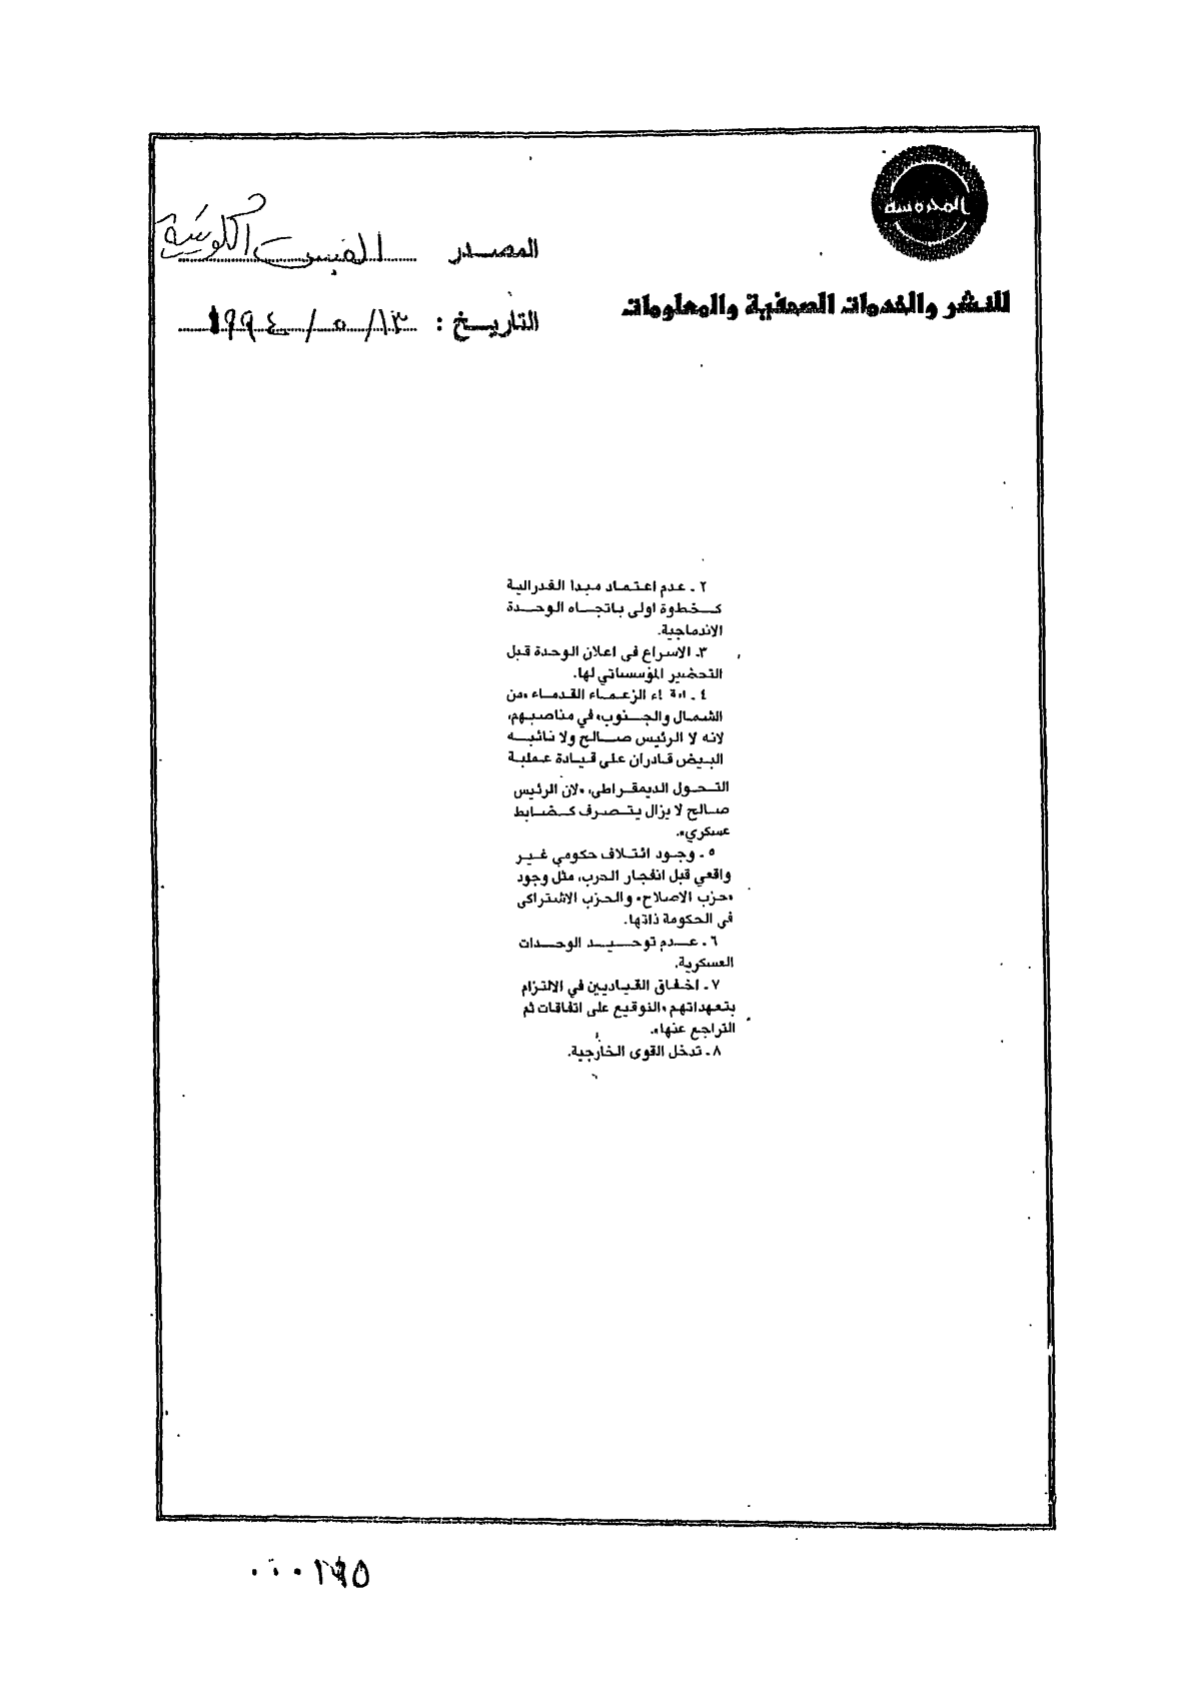 المحروسة
للنشر والخدمات الصحفية والمعلومات
المصدر القبس الكويتية
التاريخ : ١٣ / ٥ / ١٩٩٤
٢ ـ عدم اعتماد مبدا الفدرالية
كخطوة اولى باتجاه الوحدة
الاندماجية.
٣ـ الاسراع فى اعلان الوحدة قبل
التحضير المؤسساتي لها.
٤ ـ الزعماء القدماء «من
الشمال والجنوب» في مناصبهم،
لانه لا الرئيس صالح ولا نائبه
البيض قادران على قيادة عملية
التحول الديمقراطى، «لان الرئيس
صالح لا يزال يتصرف كضابط
عسكري».
٥ ـ وجود ائتلاف حكومي غير
واقعي قبل انفجار الحرب، مثل وجود
«حزب الاصلاح» والحزب الاشتراكى
فى الحكومة ذاتها.
٦ ـ عدم توحيد الوحدات
العسكرية.
٧ ـ اخفاق القياديين في الالتزام
بتعهداتهم «التوقيع على اتفاقات ثم
التراجع عنها».
٨ ـ تدخل القوى الخارجية.